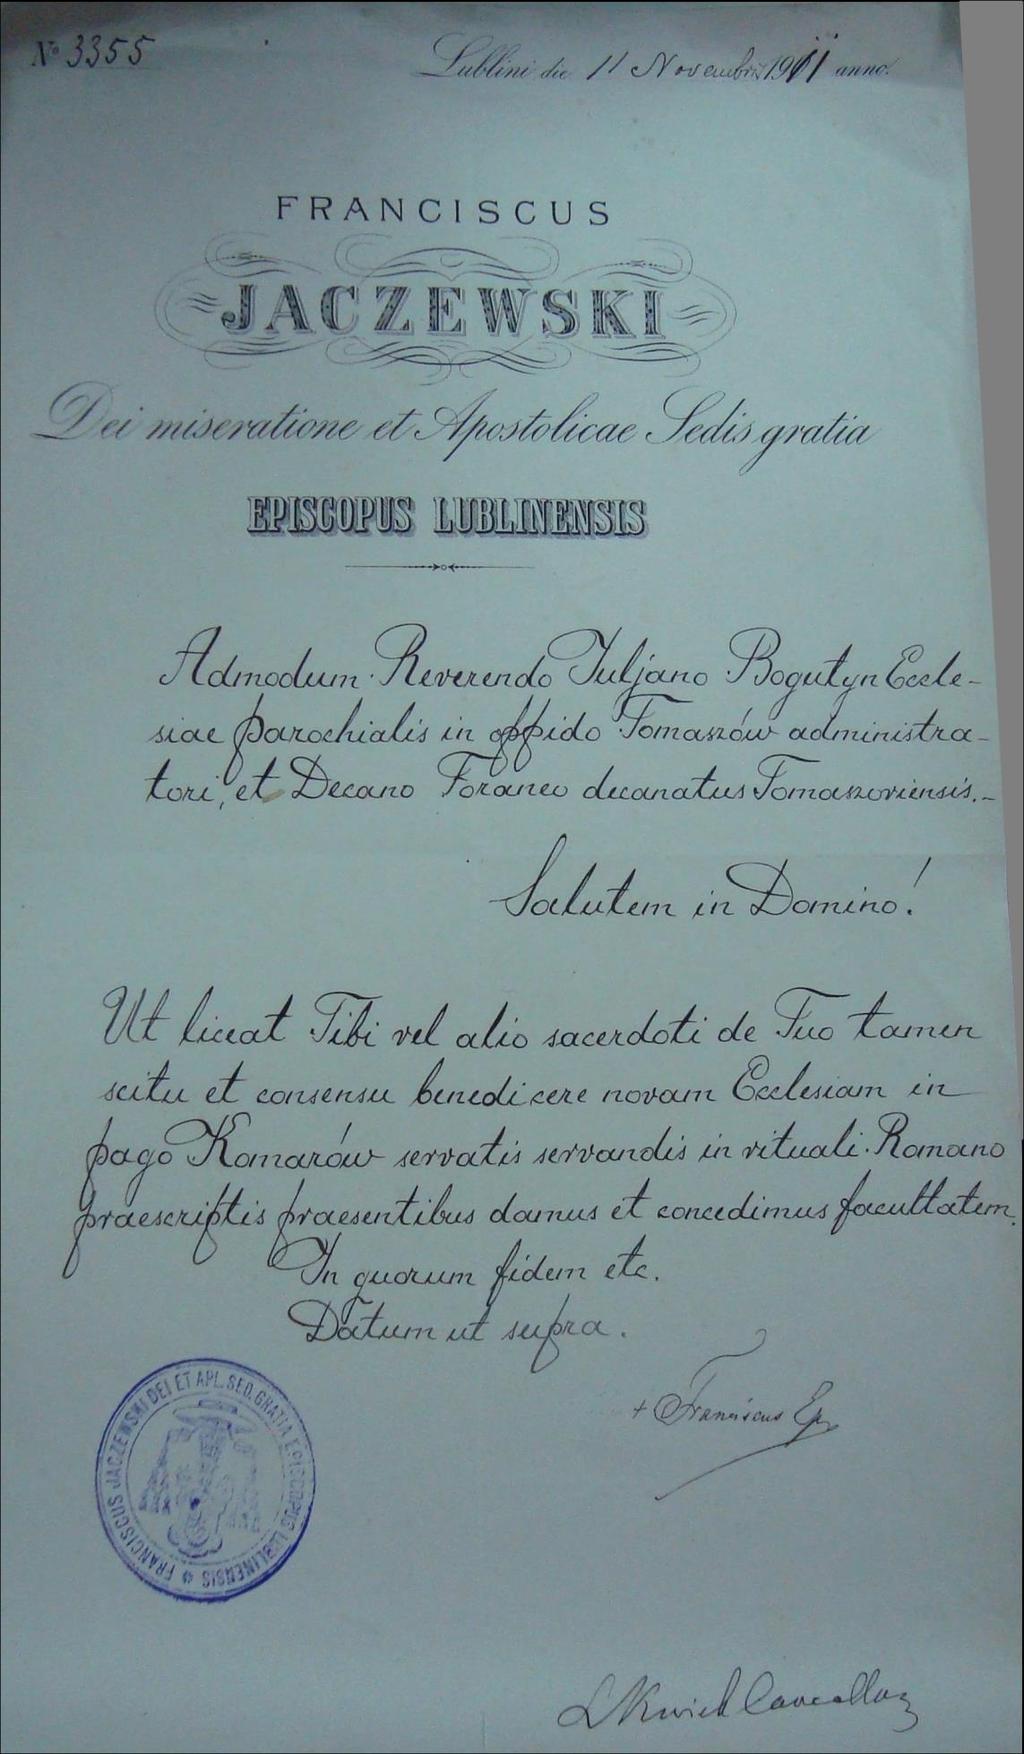 No 3355
Lublini die 11 Novembris 1911 anno.
FRANCISCUS
JACZEWSKI
Dei miseratione et Apostolicae Sedis gratia
EPISCOPUS LUBLINENSIS
Admodum Reverendo Juljano Bogutyn Eccle-
siae parochialis in oppido Tomaszów administra-
tori, et Decano Foraneo decanatus Tomaszoviensis.-
Salutem in Domino!
Ut liceat Tibi vel alio sacerdoti de Tuo tamen
scitu et consensu benedicere novam Ecclesiam in
pago Komarów servatis servandis in rituali Romano
praescriptis praesentibus damus et concedimus facultatem.
In quorum fidem etc.
Datum ut supra.
+ Franciscus Ep
FRANCISCUS JACZEWSKI DEI ET APL. SED. GRATIA EPISCOPUS LUBLINENSIS